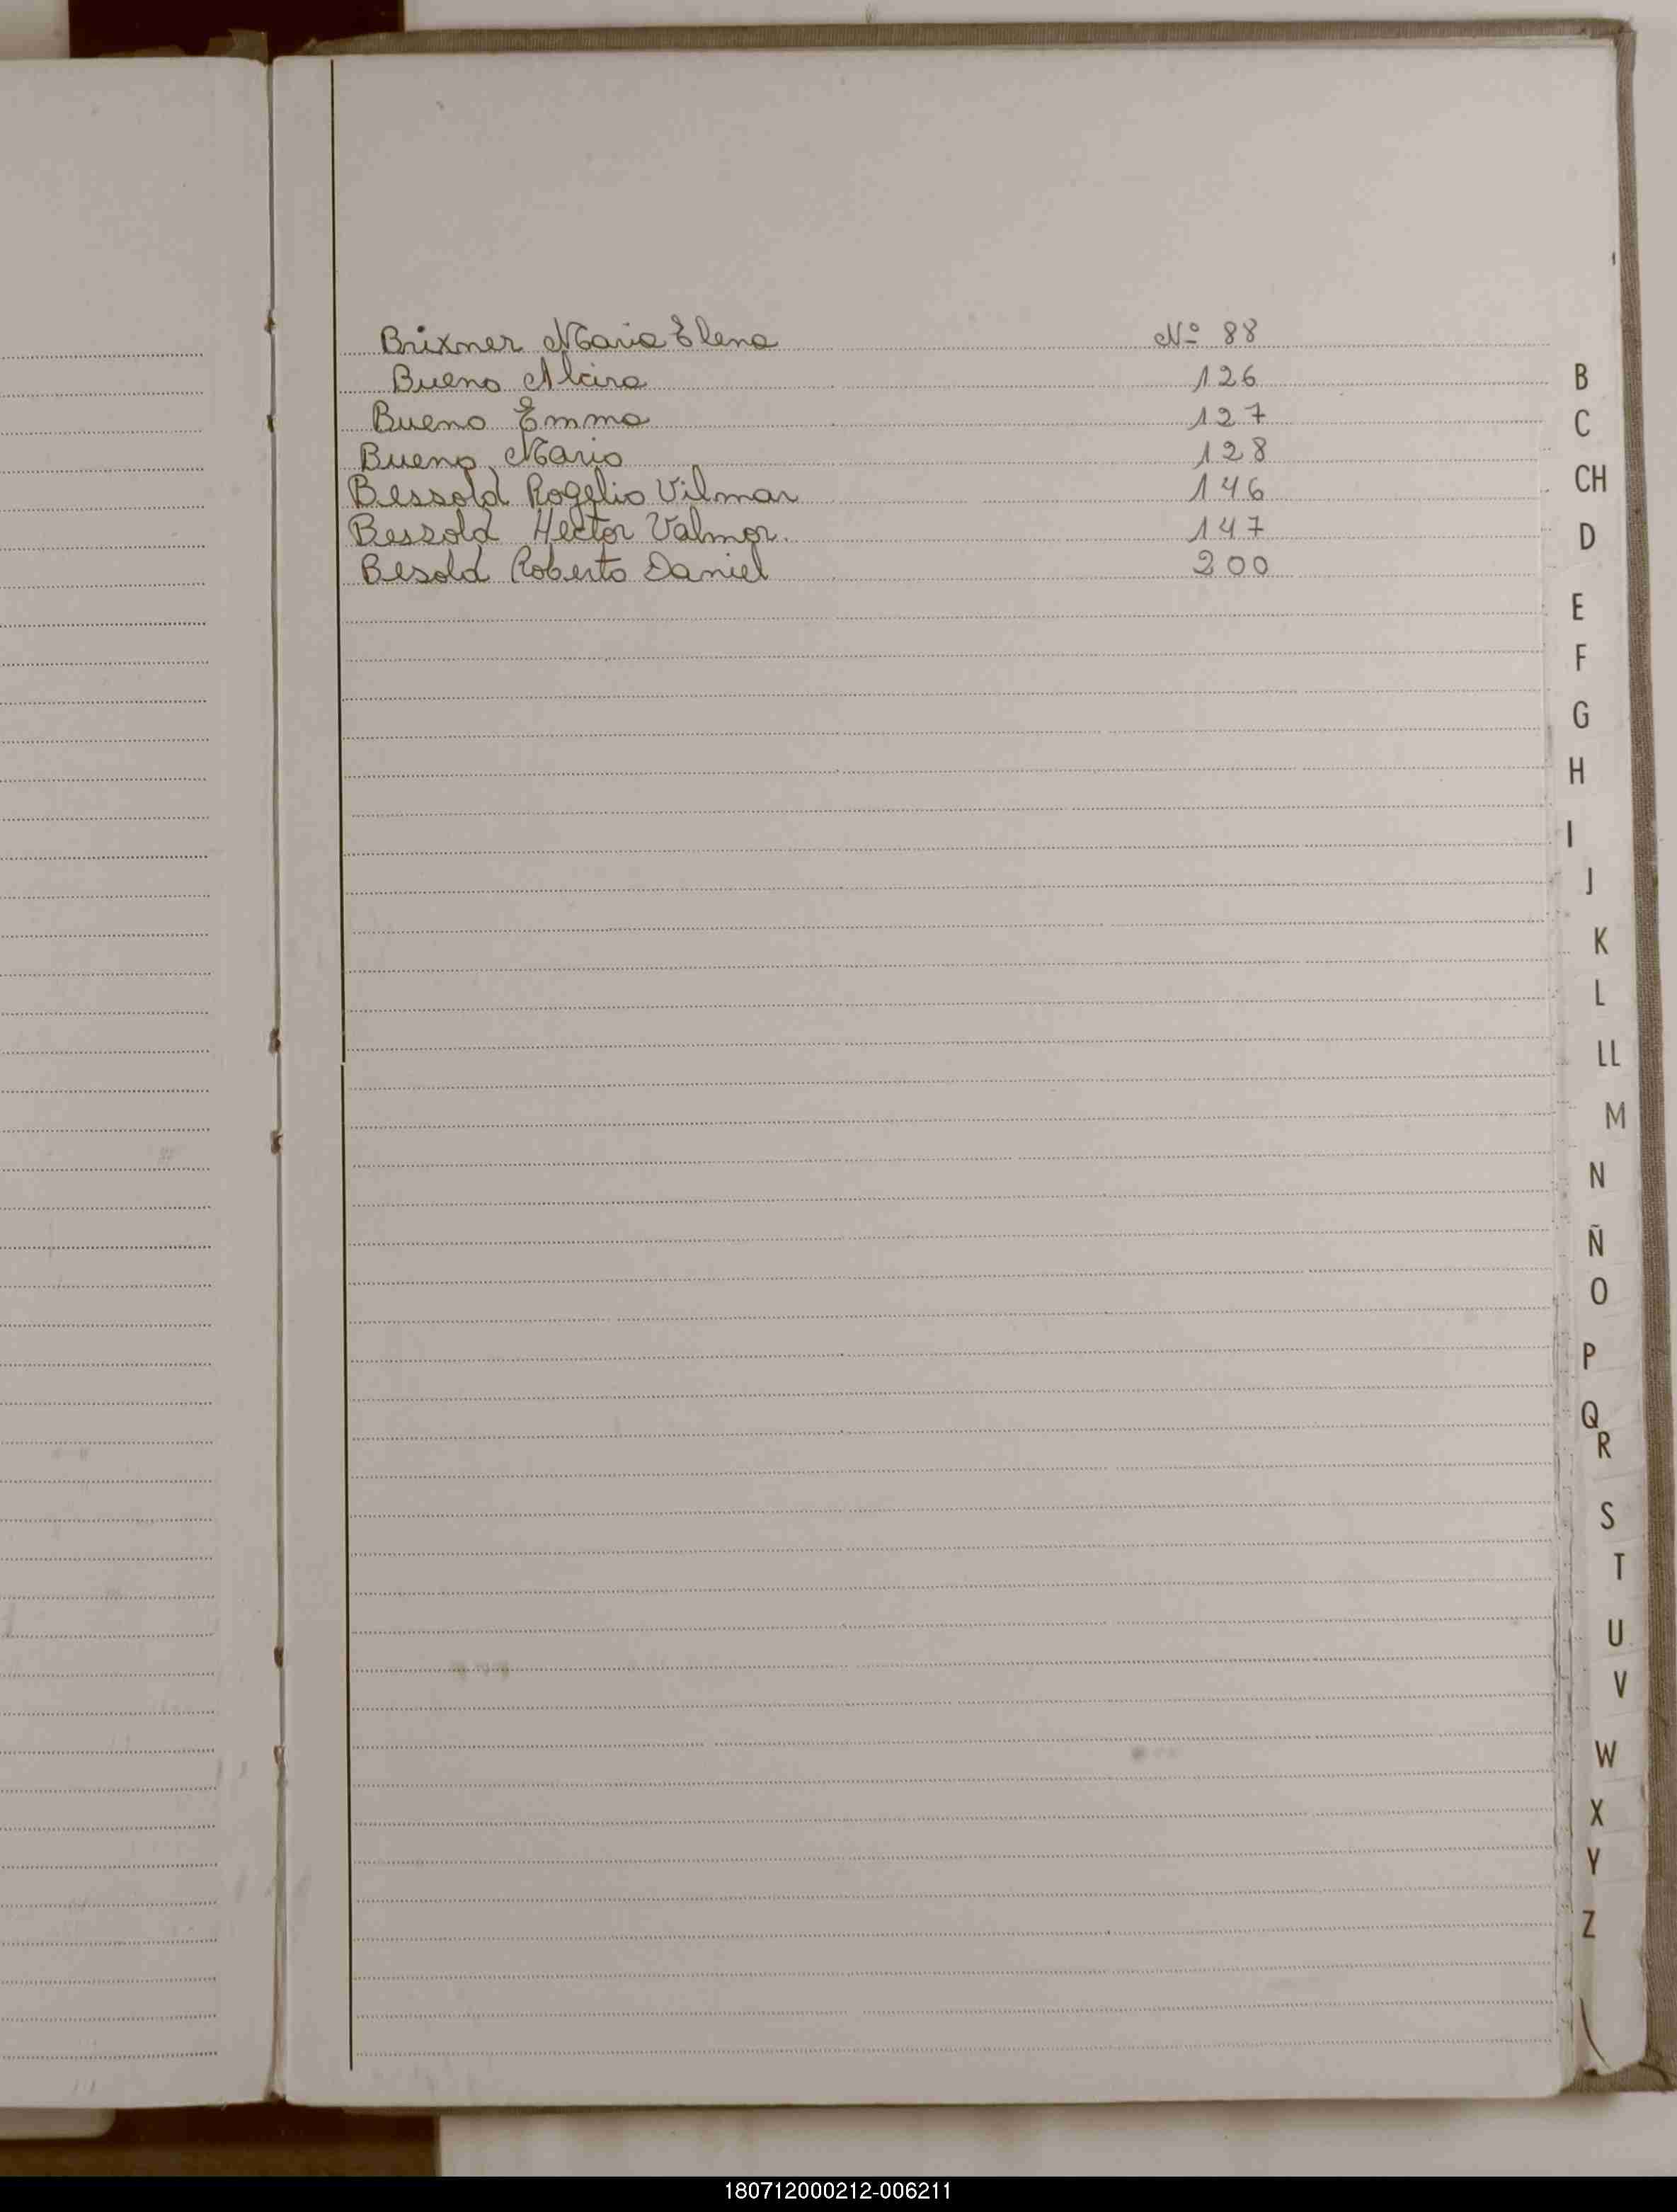 Brixner Maria Elena Nº 88
Bueno Alcira 126
Bueno Emma 127
Bueno Mario 128
Bessold Rogelio Vilmar 146
Bessold Hector Valmor. 147
Besold Roberto Daniel 200
B
C
CH
D
E
F
G
H
I
J
K
L
LL
M
N
Ñ
O
P
Q
R
S
T
U
V
W
X
Y
Z
180712000212-006211